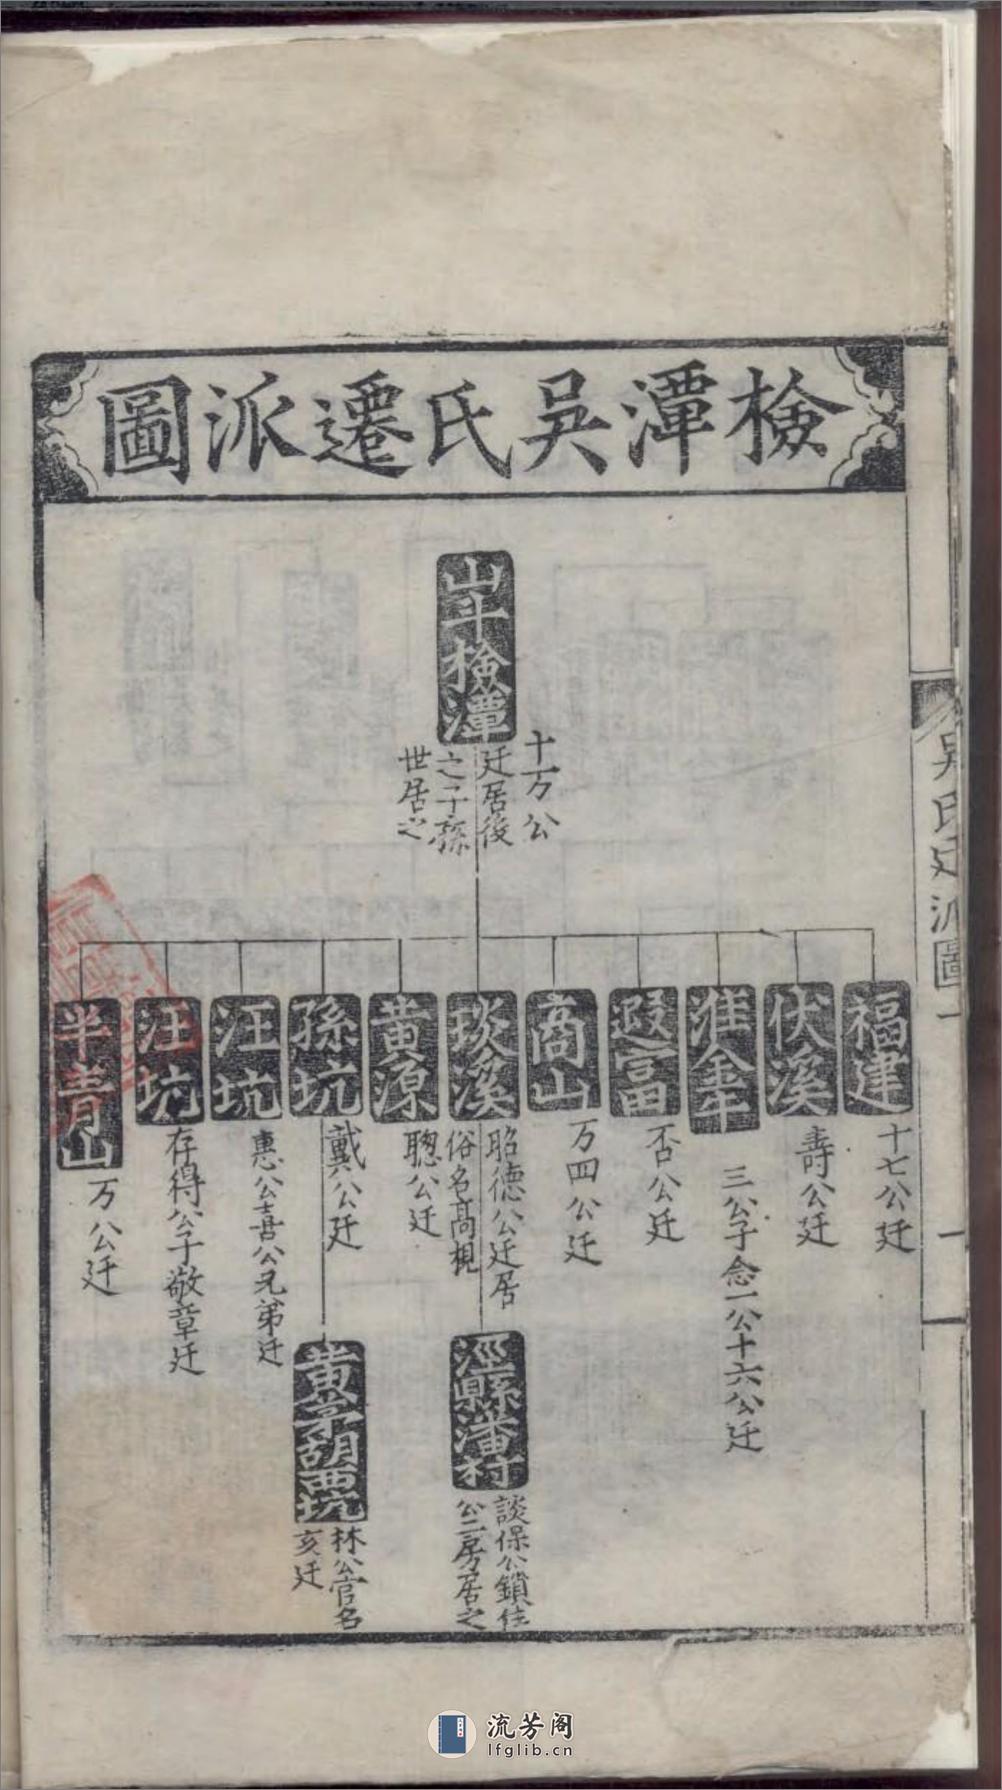 檢潭吳氏遷派圖
山斗檢潭
十一万公
迁居後
之子孫
世居之
福建
十七公迁
伏溪
壽公迁
淮牵
三公子念一公十六公迁
遐富
否公迁
商山
万四公迁
琰溪
昭德公迁居
俗名髙梘
涇縣潘村
談保公鎖住
公二房居之
黄源
聰公迁
孫坑
戴公迁
黄茅胡西坑
林公官名
亥迁
汪坑
惠公喜公兄弟迁
汪坑
存得公子敬章迁
半青山
万公迁
吳氏迁派圖
一
流芳阁
lfglib.cn